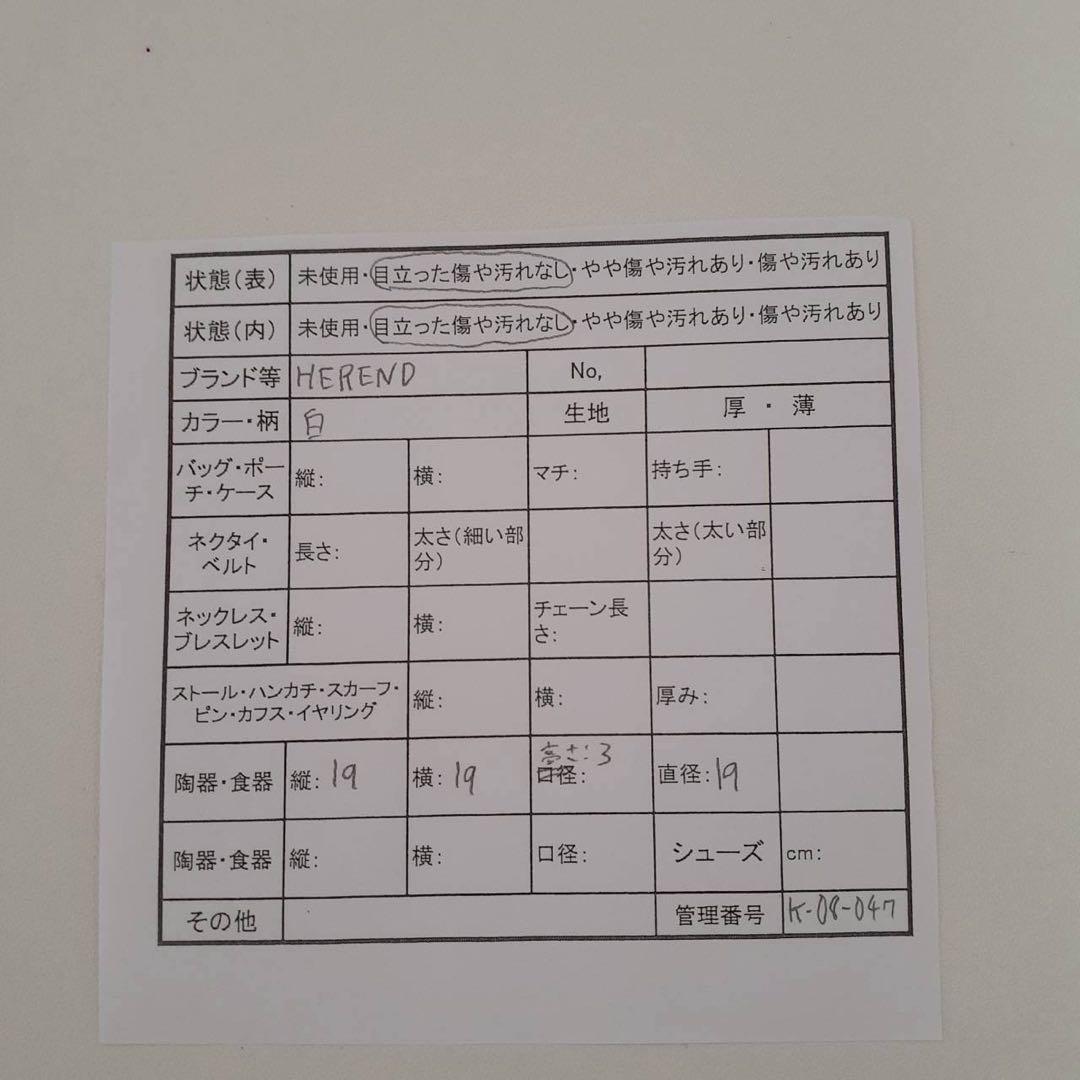 状態(表) 未使用・目立った傷や汚れなし・やや傷や汚れあり・傷や汚れあり
状態(内) 未使用・目立った傷や汚れなし・やや傷や汚れあり・傷や汚れあり
ブランド等 HEREND No,
カラー・柄 白 生地 厚・薄
バッグ・ポー
チ・ケース 縦: 横: マチ: 持ち手:
ネクタイ・
ベルト 長さ: 太さ(細い部
分) 太さ(太い部
分)
ネックレス・
ブレスレット 縦: 横: チェーン長
さ:
ストール・ハンカチ・スカーフ・
ピン・カフス・イヤリング 縦: 横: 厚み:
高さ:3
陶器・食器 縦:19 横:19 口径: 直径:19
陶器・食器 縦: 横: 口径: シューズ cm:
その他 管理番号 K-08-047